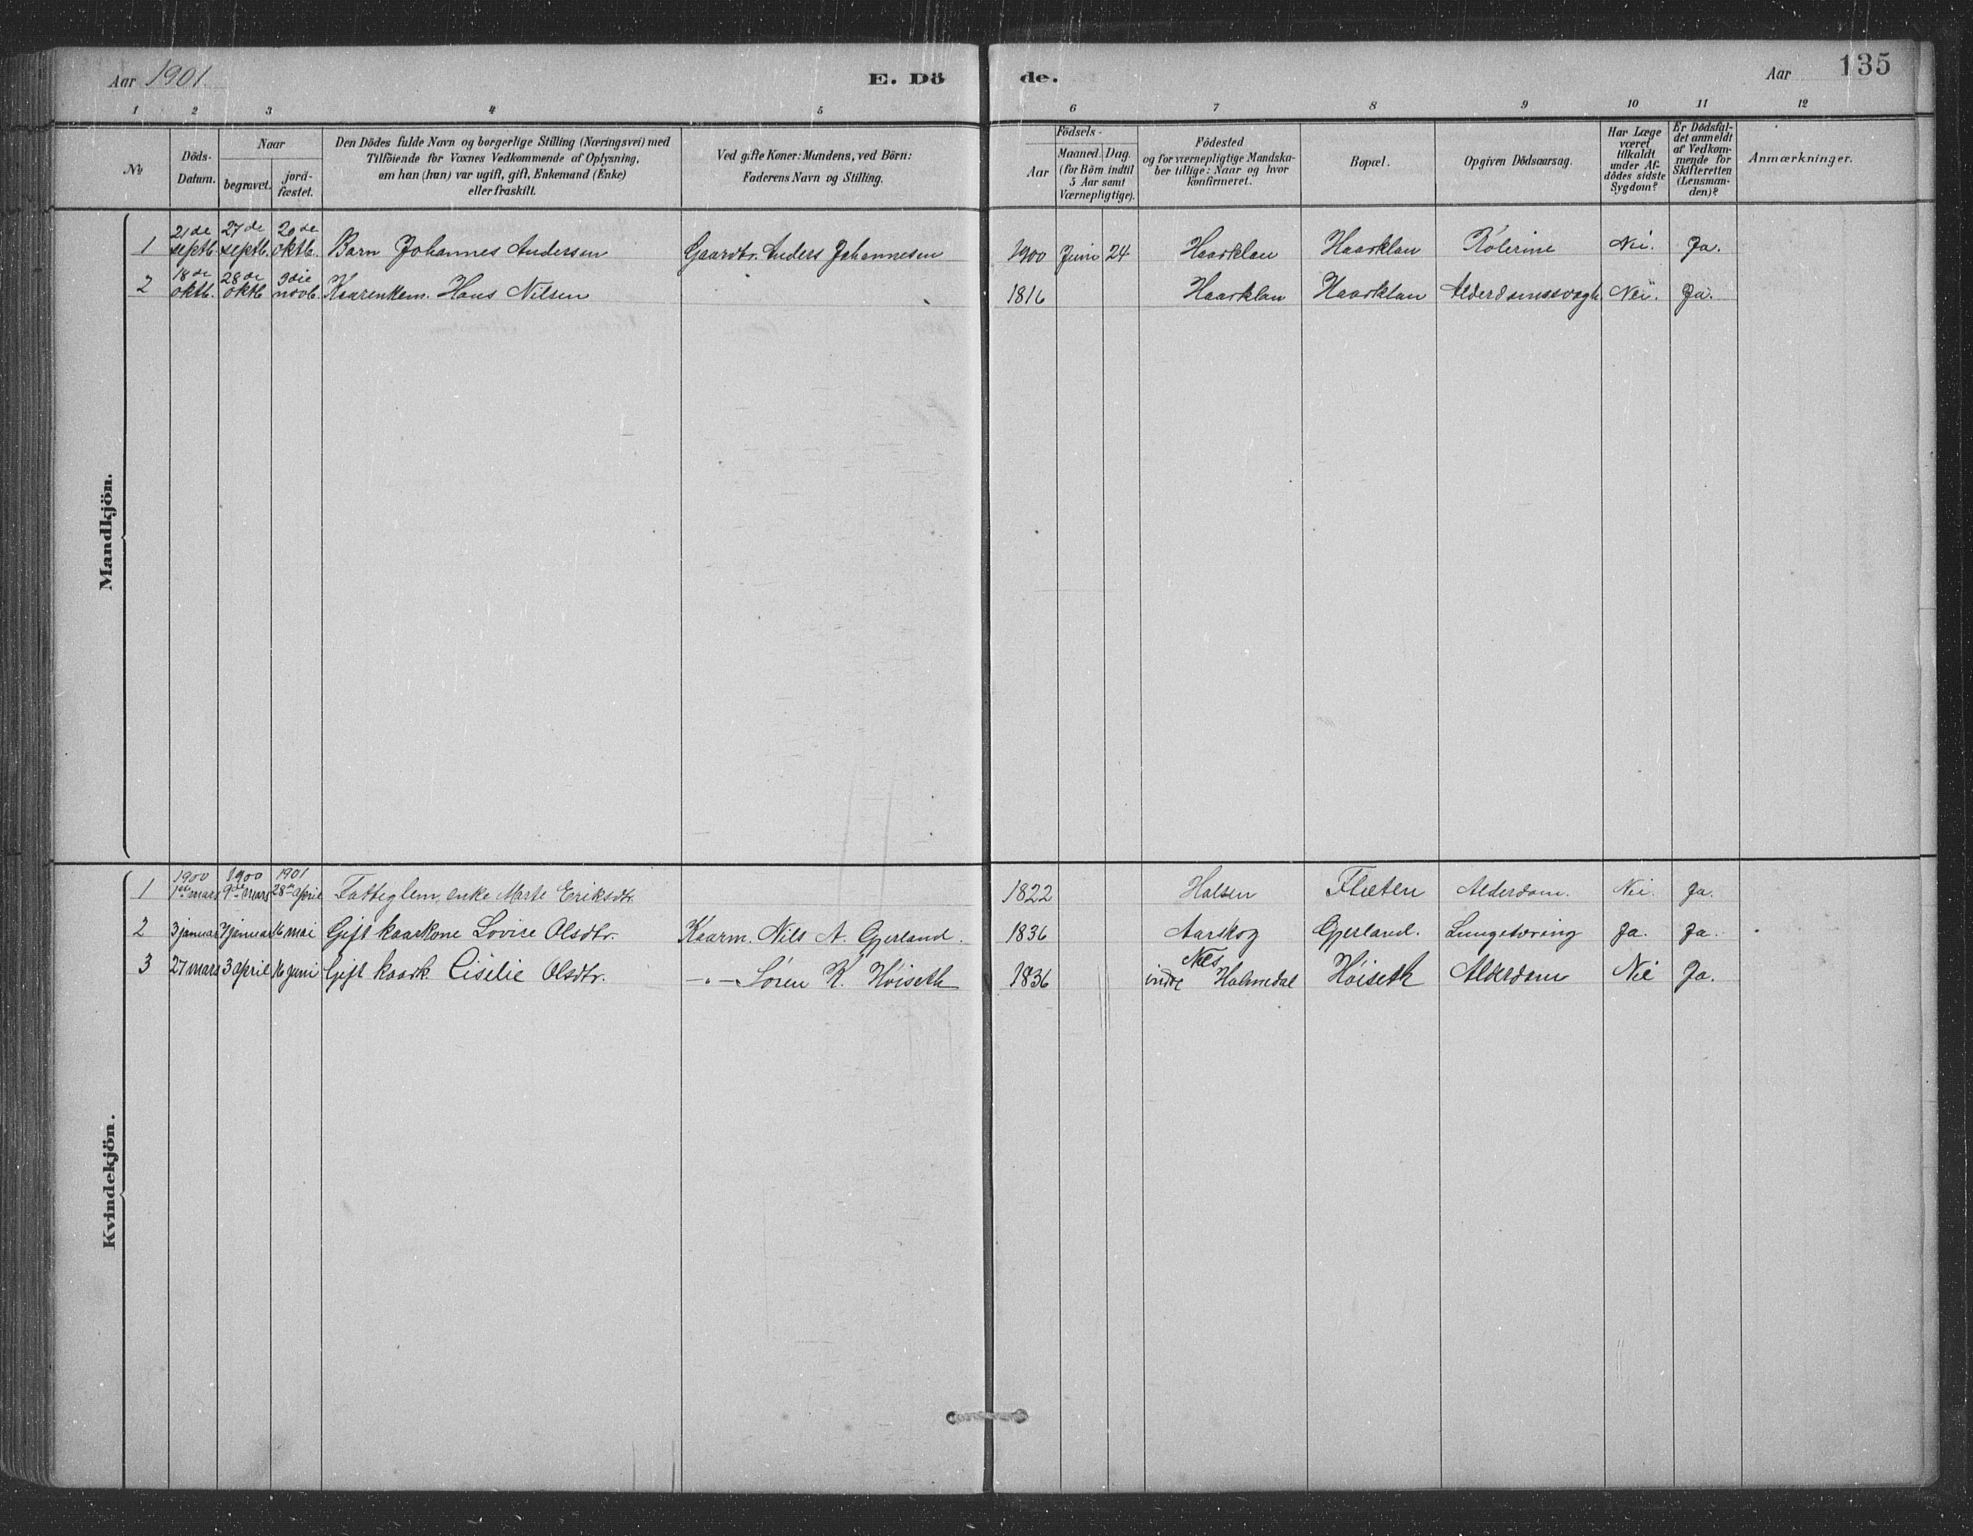 Aar 1901. E. Dö de. Aar 135
1 2 3 4 5 6 7 8 9 10 11 12
№ Döds-Datum. Naar begravet. jordfæstet. Den Dödes fulde Navn og borgerlige Stilling (Næringsvei) med Tilföiende for Voxnes Vedkommende af Oplysning, om han (hun) var ugift, gift, Enkemand (Enke) eller fraskilt. Ved gifte Koner: Mandens, ved Börn: Faderens Navn og Stilling. Födsels- Aar Maaned. Dag. (for Börn indtil 5 Aar samt Værnepligtige). Födested og for værnepligtige Mandskaber tillige: Naar og hvor konfirmeret. Bopæl. Opgiven Dödsaarsag. Har Læge været tilkaldt under Afdödes sidste Sygdom? Er Dödsfaldet anmeldt af Vedkommende for Skifteretten (Lensmanden)? Anmærkninger.
Mandkjön.
1 21de septb. 27de septb. 20de oktb. Barn Johannes Andersen Gaardbr. Anders Johannesen 1900 Juni 24 Haarklau Haarklau Kolerine Nei. Ja.
2 18de oktb. 28de oktb. 9die novb. Kaarenkem. Hans Nilsen 1816 Haarklau Haarklau Alderdomssvagh. Nei. Ja.
Kvindekjön.
1 1900 1ste mars 1900 9de mars 1901 28de april Fattiglem, enke Marte Eriksdtr. 1822 Halsen Flæten Alderdom. Nei. Ja.
2 3 januar 7 januar 16 mai Gift kaarkone Lovise Olsdtr. Kaarm. Nils A. Gjerland. 1836 Aarskog Gjerland. Lungetæring Ja. Ja.
3 27 mars 3 april 16 juni Gift kaark. Cisilie Olsdtr. -"- Søren K. Høiseth 1836 Nes indre Holmedal Høiseth Alderdom Nei Ja.